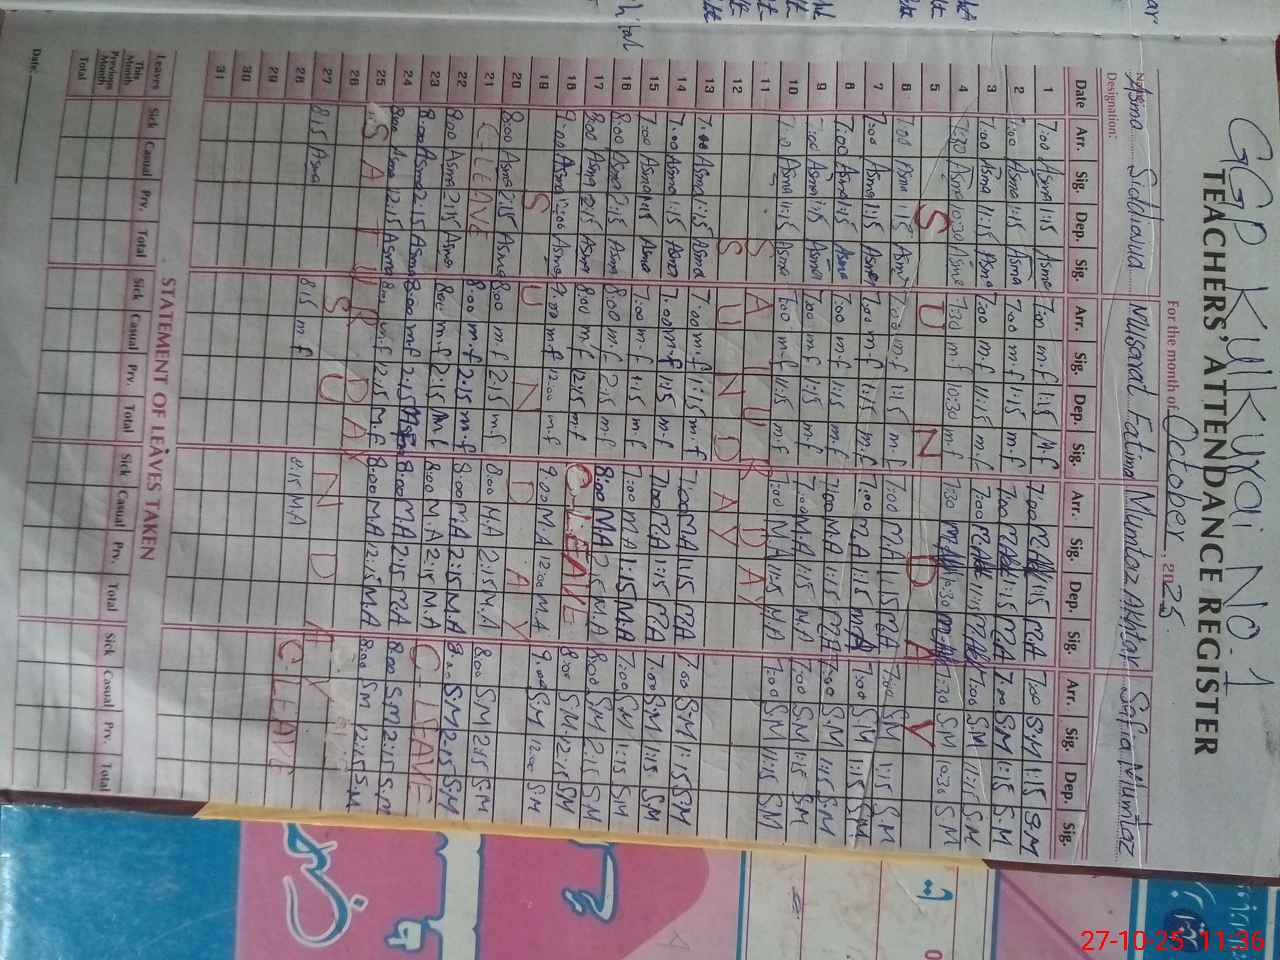 GGP Kulkurai No. 1
TEACHERS' ATTENDANCE REGISTER
For the month of October, 2025.
Name Asma Siddiqua Musarat Fatima Mumtaz Akhtar Safia Mumtaz
Designation:
Date Arr. Sig. Dep. Sig. Arr. Sig. Dep. Sig. Arr. Sig. Dep. Sig. Arr. Sig. Dep. Sig.
1 7:00 Asma 1:15 Asma 7:00 m.f 1:15 M.f 7:00 MA 1:15 MA 7:00 SM 1:15 SM
2 7:00 Asma 1:15 Asma 7:00 m.f 1:15 m.f 7:00 MA 1:15 MA 7:00 SM 1:15 SM
3 7:00 Asma 11:15 Asma 7:00 m.f 11:15 m.f 7:00 MA 11:15 MA 7:00 SM 11:15 SM
4 7:30 Asma 10:30 Asma 7:30 m.f 10:30 m.f 7:30 10:30 7:30 SM 10:30 SM
5 S U N D A Y
6 7:00 Asma 1:15 Asma 7:00 m.f 1:15 m.f 7:00 MA 1:15 MA 7:00 SM 1:15 SM
7 7:00 Asma 1:15 Asma 7:00 m.f 1:15 m.f 7:00 MA 1:15 MA 7:00 SM 1:15 SM
8 7:00 Asma 1:15 Asma 7:00 m.f 1:15 m.f 7:00 MA 1:15 MA 7:00 SM 1:15 SM
9 7:00 Asma 1:15 Asma 7:00 m.f 1:15 m.f 7:00 MA 1:15 MA 7:00 SM 1:15 SM
10 7:00 Asma 11:15 Asma 7:00 m.f 11:15 m.f 7:00 MA 11:15 MA 7:00 SM 11:15 SM
11 S A T U R D A Y
12 S U N D A Y
13 7:00 Asma 1:15 Asma 7:00 m.f 1:15 m.f 7:00 MA 1:15 MA 7:00 SM 1:15 SM
14 7:00 Asma 1:15 Asma 7:00 m.f 1:15 m.f 7:00 MA 1:15 MA 7:00 SM 1:15 SM
15 7:00 Asma 1:15 Asma 7:00 m.f 1:15 m.f 7:00 MA 1:15 MA 7:00 SM 1:15 SM
16 8:00 Asma 2:15 Asma 8:00 m.f 2:15 m.f 8:00 MA 2:15 M.A 8:00 SM 2:15 SM
17 8:00 Asma 12:15 Asma 8:00 m.f 12:15 m.f C. LEAVE 8:00 SM 12:15 SM
18 9:00 Asma 12:00 Asma 9:00 m.f 12:00 m.f 9:00 M.A 12:00 M.A 9:00 SM 12:00 S.M
19 S U N D A Y
20 8:00 Asma 2:15 Asma 8:00 m.f 2:15 m.f 8:00 M.A 2:15 M.A 8:00 SM 2:15 SM
21 C-LEAVE 8:00 m.f 2:15 m.f 8:00 M.A 2:15 M.A 8:00 SM 2:15 SM
22 8:00 Asma 2:15 Asma 8:00 m.f 2:15 M.f 8:00 M.A 2:15 M.A C- LEAVE
23 8:00 Asma 2:15 Asma 8:00 m.f 2:15 8:00 MA 2:15 MA 8:00 SM 2:15 S.M
24 8:00 Asma 12:15 Asma 8:00 m.f 12:15 m.f 8:00 MA 12:15 M.A 8:00 SM 12:15 S.M
25 S A T U R D A Y
26 S U N D A Y
27 8:15 Asma 8:15 m.f 8:15 M.A C LEAVE
28
29
30
31
STATEMENT OF LEAVES TAKEN
Leaves Sick Casual Prv. Total Sick Casual Prv. Total Sick Casual Prv. Total Sick Casual Prv. Total
This Month
Previous Month
Total
Date:
27-10-25 11:36